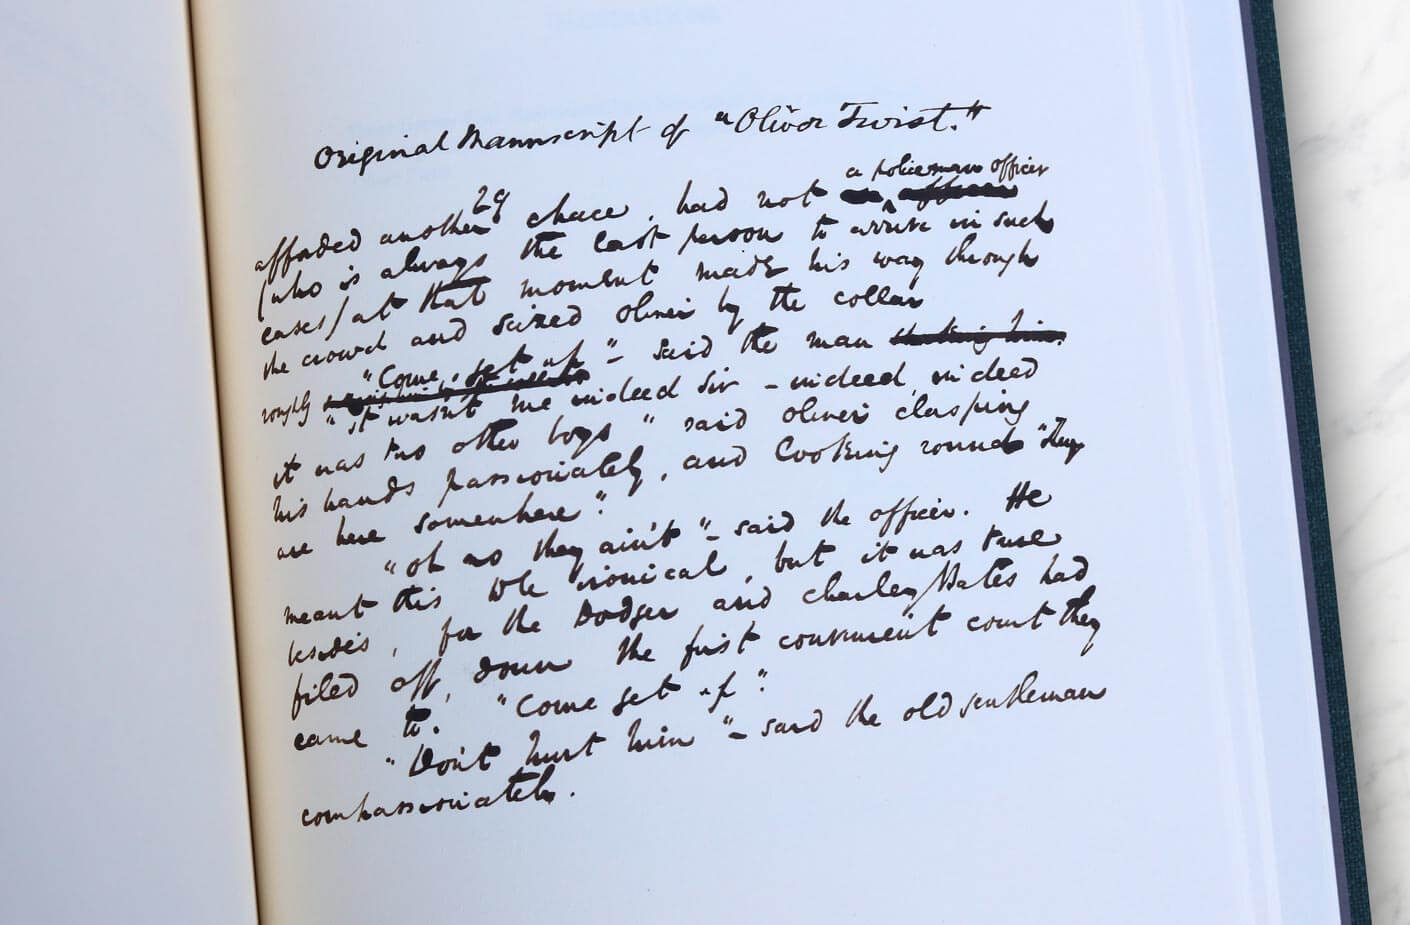 Original Manuscript of "Oliver Twist."
29
a policeman officer
afforded another chace, had not
(who is always the last person to arrive in such
cases) at that moment made his way through
the crowd and seized Oliver by the collar
roughly "Come, get up" – said the man
"It wasn't me indeed sir – indeed, indeed
it was two other boys" said Oliver clasping
his hands passionately, and looking round "they
are here somewhere".
"oh no they ain't" – said the officer. He
meant this to be ironical, but it was true
besides, for the Dodger and Charley Bates had
filed off, down the first convenient court they
came to. "Come get up".
"Don't hurt him" – said the old gentleman
compassionately.